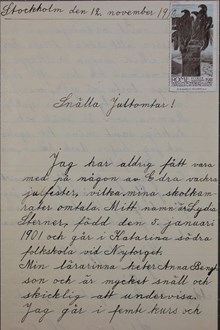 Stockholm den 12. november 19
Snälla Jultomtar!
Jag har aldrig fått vara
med på någon av Edra vackra
julfester, vilka mina skolkam-
rater omtala. Mitt namn är Lydia
Stirner, född den 5. januari
1901 och går i Katarina södra
folkskola vid Nytorget.
Min lärarinna heter Anna Bengt-
son och är mycket snäll och
skicklig att undervisa.
Jag går i femte kurs och